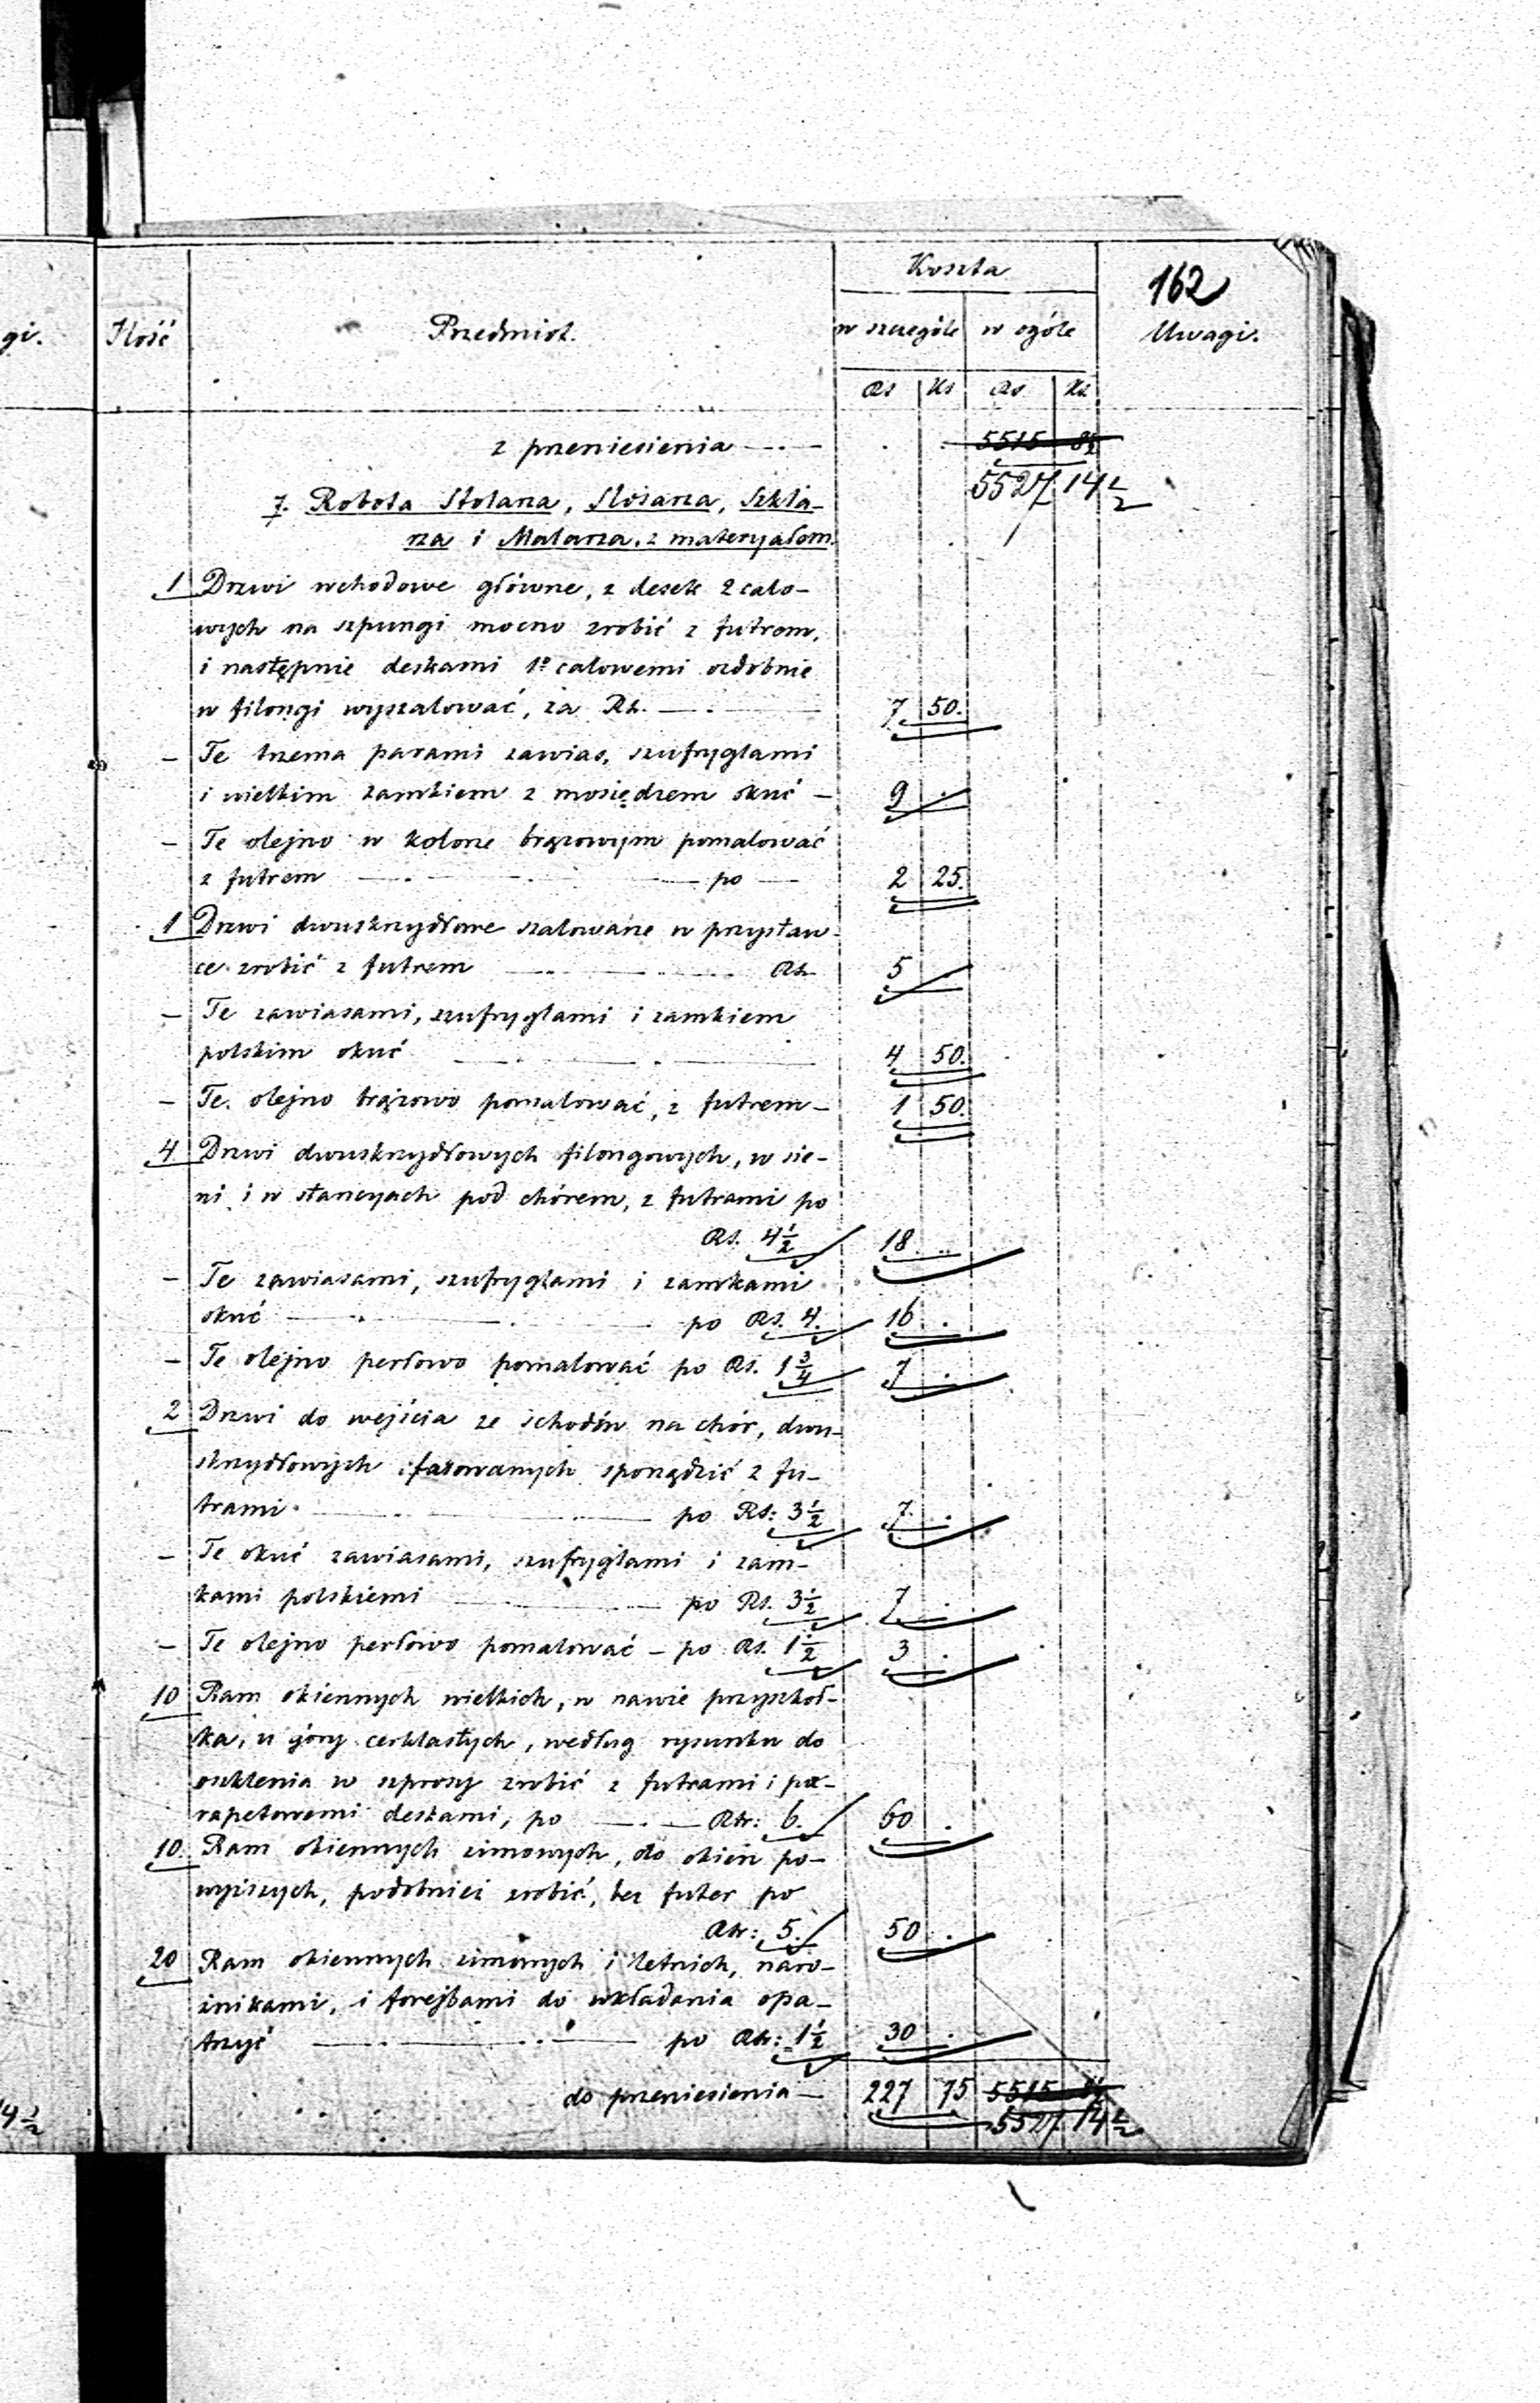 162
Koszta
gi. Ilość Przedmiot. w szczególe w ogóle Uwagi.
Rs Ks Rs Ks
z przeniesienia — 5515 8½
5527 14½
7. Robota Stolarza, Ślósarza, Szkla-
rza i Malarza, z materyałom.
1 Drzwi wchodowe główne, z desek 2 calo-
wych na szpungi mocno zrobić z futrem,
i następnie deskami 1º calowemi ozdobnie
w filongi wyszalować, za Rs. — 7 50.
— Te trzema parami zawias, szufryglami
i wielkim zamkiem z mosiędzem okuć — 9 .
— Te olejno w kolorze brązowym pomalować
z futrem — po — 2 25.
1 Drzwi dwuskrzydłowe szalowane w przystaw-
ce zrobić z futrem — Rs. 5 .
— Te zawiasami, szufryglami i zamkiem
polskim okuć — 4 50.
— Te. olejno brązowo pomalować, z futrem — 1 50.
4 Drzwi dwuskrzydłowych filongowych, w sie-
ni i w stancyach pod chórem, z futrami po
Rs. 4½ 18 .
— Te zawiasami, szufryglami i zamkami
okuć — po Rs. 4. 16 .
— Te olejno perłowo pomalować po Rs. 1¾ 7 .
2 Drzwi do wejścia ze schodów na chór, dwu-
skrzydłowych fazowanych sporządzić z fu-
trami — po Rs: 3½ 7 .
— Te okuć zawiasami, szufryglami i zam-
kami polskiemi — po Rs. 3½ 7 .
— Te olejno perłowo pomalować — po Rs. 1½ 3 .
10 Ram okiennych wielkich, w nawie przyszkoł-
ka, u góry cerklastych, według rysunku do
oszklenia w szprosy zrobić z futrami i pa-
rapetowemi deskami, po — Rsr: 6. 60 .
10. Ram okiennych zimowych, do okien po-
wyższych, podobnież zrobić, bez futer po
Rsr: 5. 50 .
20 Ram okiennych zimowych i letnich, naro-
żnikami, i forejbami do wkładania opa-
trzyć — po Rsr: 1½ 30 .
do przeniesienia — 227 75 5515 8½
4½ 5527 14½